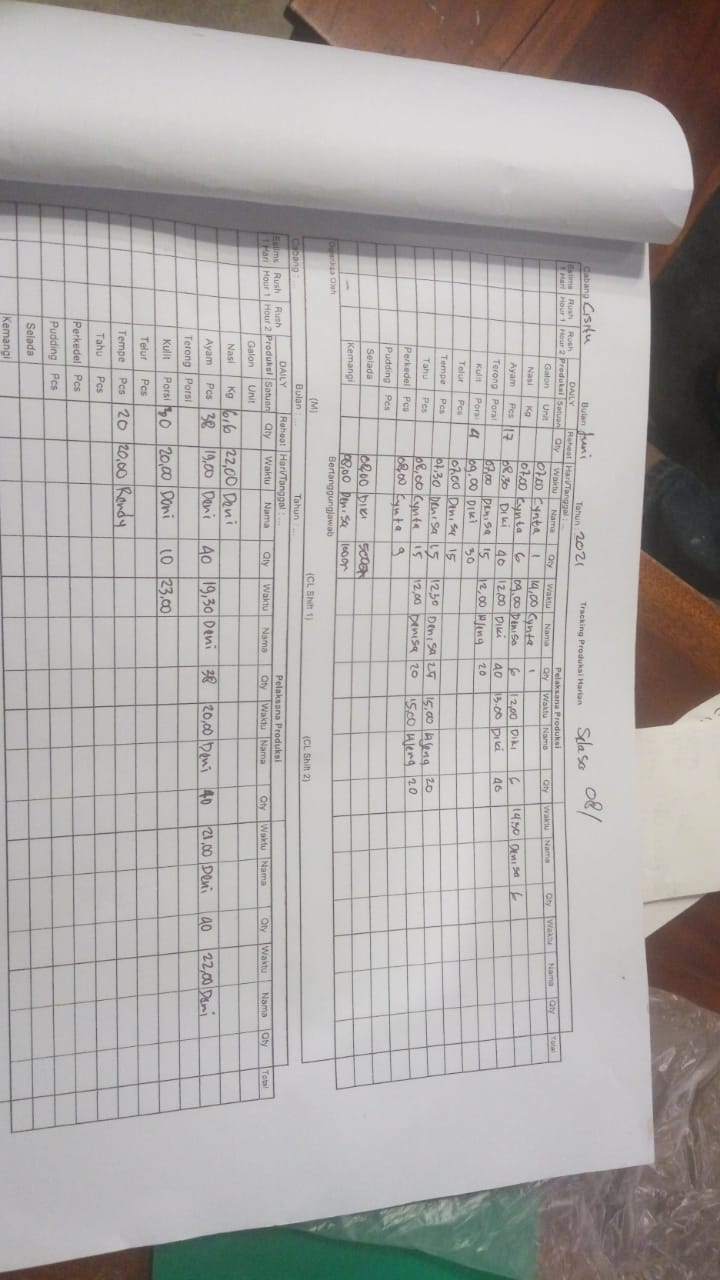 Cabang Cisitu Bulan Juni Tahun: 2021 Tracking Produksi Harian Selasa 08/
Estims 1 Hari Rush Hour 1 Rush Hour 2 DAILY Produksi Satuan Reheat Qty Hari/Tanggal: Pelaksana Produksi
Waktu Nama Qty Waktu Nama Qty Waktu Nama Qty Waktu Nama Qty Waktu Nama Qty Total
Galon Unit 07.00 Cynta 1 14,00 Cynta 1
Nasi Kg 07.00 Cynta 6 09,00 Denisa 6 12,00 Diki 6 14,30 Denisa 6
Ayam Pcs 17 08.30 Diki 40 12,00 Diki 40 13.00 Diki 40
Terong Porsi 07,00 Denisa 15 12,00 Ajeng 20
Kulit Porsi 4 09,00 Diki 30
Telur Pcs 07.00 Denisa 15
Tempe Pcs 07,30 Denisa 15 12.30 Denisa 25 15,00 Ajeng 20
Tahu Pcs 08,00 Cynta 15 12,00 Denisa 20 15,00 Ajeng 20
Perkedel Pcs 08,00 Cynta 9
Pudding Pcs
Selada 08,00 Diki
- Kemangi 08,00 Denisa
Diperiksa Oleh Bertanggungjawab
(M) (CL Shift 1) (CL Shift 2)
Cabang : Bulan : Tahun :
Estims 1 Hari Rush Hour 1 Rush Hour 2 DAILY Produksi Satuan Reheat Qty Hari/Tanggal: Pelaksana Produksi
Waktu Nama Qty Waktu Nama Qty Waktu Nama Qty Waktu Nama Qty Waktu Nama Qty Total
Galon Unit
Nasi Kg 6,6 22,00 Deni
Ayam Pcs 38 19,00 Deni 40 19,30 Deni 38 20,00 Deni 40 21,00 Deni 40 22,00 Deni
Terong Porsi
Kulit Porsi 30 20,00 Deni 10 23,00
Telur Pcs
Tempe Pcs 20 20,00 Randy
Tahu Pcs
Perkedel Pcs
Pudding Pcs
Selada
Kemangi